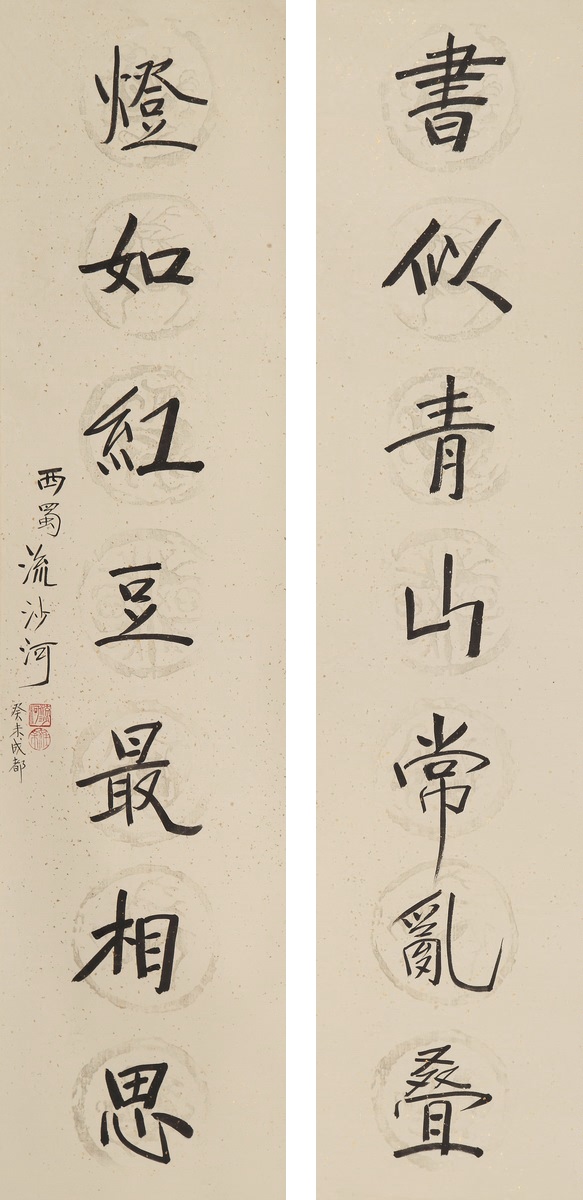 書似青山常亂疊
燈如紅豆最相思
西蜀流沙河
癸未成都